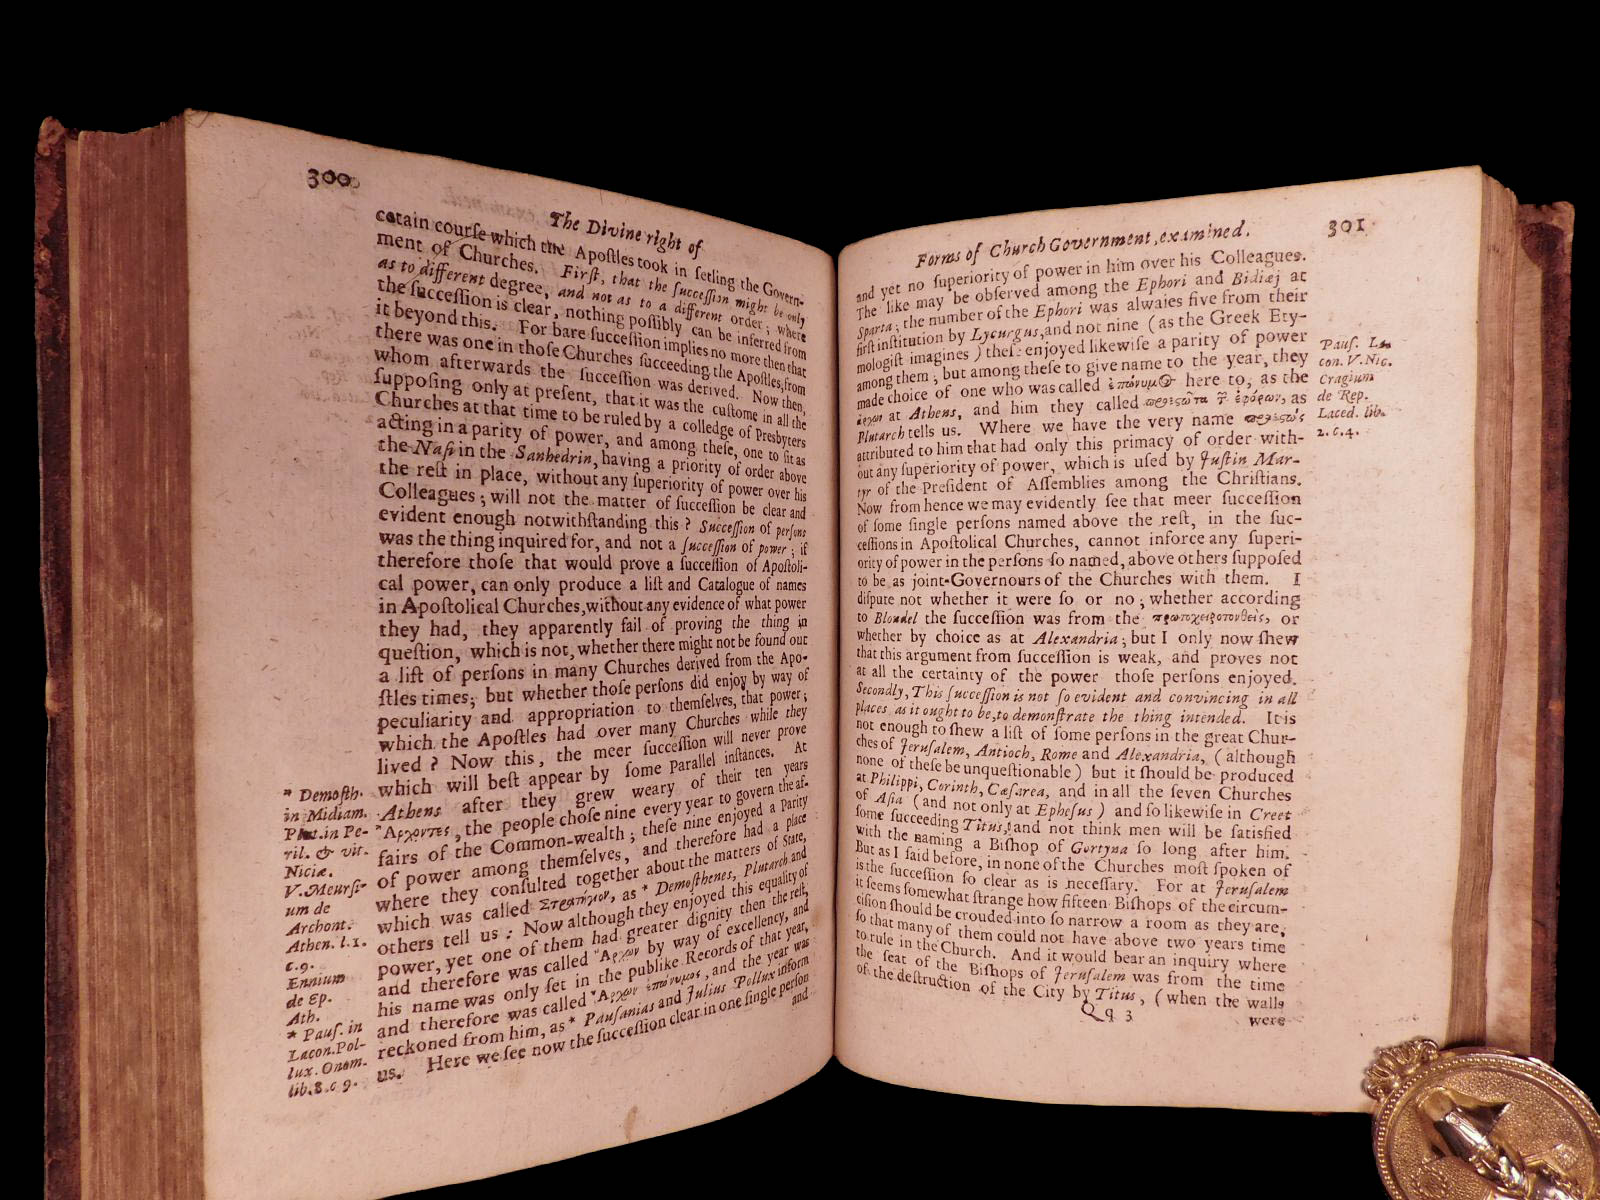 300
The Divine right of
cetain courſe which the Apoſtles took in ſetling the Govern-
ment of Churches. Firſt, that the ſucceſſion might be only
as to different degree, and not as to a different order; where
the ſucceſſion is clear, nothing poſſibly can be inferred from
it beyond this. For bare ſucceſſion implies no more then that
there was one in thoſe Churches ſucceeding the Apoſtles, from
whom afterwards the ſucceſſion was derived. Now then,
ſuppoſing only at preſent, that it was the cuſtome in all the
Churches at that time to be ruled by a colledge of Presbyters
acting in a parity of power, and among theſe, one to ſit as
the Naſi in the Sanhedrin, having a priority of order above
the reſt in place, without any ſuperiority of power over his
Colleagues; will not the matter of ſucceſſion be clear and
evident enough notwithſtanding this? Succeſſion of perſons
was the thing inquired for, and not a ſucceſſion of power; if
therefore thoſe that would prove a ſucceſſion of Apoſtoli-
cal power, can only produce a liſt and Catalogue of names
in Apoſtolical Churches, without any evidence of what power
they had, they apparently fail of proving the thing in
queſtion, which is not, whether there might not be found out
a liſt of perſons in many Churches derived from the Apo-
ſtles times; but whether thoſe perſons did enjoy by way of
peculiarity and appropriation to themſelves, that power;
which the Apoſtles had over many Churches while they
lived? Now this, the meer ſucceſſion will never prove
which will beſt appear by ſome Parallel inſtances. At
Athens after they grew weary of their ten years
*Ἄρχοντες, the people choſe nine every year to govern the af-
fairs of the Common-wealth; theſe nine enjoyed a parity
of power among themſelves, and therefore had a place
where they conſulted together about the matters of State,
which was called Στρατήγιον, as * Demoſthenes, Plutarch and
others tell us: Now although they enjoyed this equality of
power, yet one of them had greater dignity then the reſt,
and therefore was called Ἄρχων by way of excellency, and
his name was only ſet in the publike Records of that year,
and therefore was called Ἄρχων ἐπώνυμος, and the year was
reckoned from him, as * Pauſanias and Julius Pollux inform
us. Here we ſee now the ſucceſſion clear in one ſingle perſon
and
* Demoſth.
in Midiam.
Plut. in Pe-
ril. & vit.
Niciæ.
V. Meurſi-
um de
Archont.
Athen. l. 1.
c. 9.
Ennium
de Ep.
Ath.
* Pauſ. in
Lacon. Pol-
lux. Onom.
lib. 8. c 9.
Forms of Church Government, examined.
301
and yet no ſuperiority of power in him over his Colleagues.
The like may be obſerved among the Ephori and Bidiæj at
Sparta; the number of the Ephori was alwaies five from their
firſt inſtitution by Lycurgus, and not nine (as the Greek Ety-
mologiſt imagines) theſe enjoyed likewiſe a parity of power
among them; but among theſe to give name to the year, they
made choice of one who was called ἐπώνυμος here to, as the
ἄρχων at Athens, and him they called προεςῶτα τ ἐφόρων, as
Plutarch tells us. Where we have the very name προεςώς
attributed to him that had only this primacy of order with-
out any ſuperiority of power, which is uſed by Juſtin Mar-
tyr of the Preſident of Aſſemblies among the Chriſtians.
Now from hence we may evidently ſee that meer ſucceſſion
of ſome ſingle perſons named above the reſt, in the ſuc-
ceſſions in Apoſtolical Churches, cannot inforce any ſuperi-
ority of power in the perſons ſo named, above others ſuppoſed
to be as joint-Governours of the Churches with them. I
diſpute not whether it were ſo or no; whether according
to Blondel the ſucceſſion was from the πρωτοχειροτονηθεὶς, or
whether by choice as at Alexandria; but I only now ſhew
that this argument from ſucceſſion is weak, and proves not
at all the certainty of the power thoſe perſons enjoyed.
Secondly, This ſucceſſion is not ſo evident and convincing in all
places as it ought to be, to demonſtrate the thing intended. It is
not enough to ſhew a liſt of ſome perſons in the great Chur-
ches of Jeruſalem, Antioch, Rome and Alexandria, (although
none of theſe be unqueſtionable) but it ſhould be produced
at Philippi, Corinth, Cæſarea, and in all the ſeven Churches
of Aſia (and not only at Epheſus) and ſo likewiſe in Creet
ſome ſucceeding Titus, and not think men will be ſatisfied
with the naming a Biſhop of Gortyna ſo long after him.
But as I ſaid before, in none of the Churches moſt ſpoken of
is the ſucceſſion ſo clear as is neceſſary. For at Jeruſalem
it ſeems ſomewhat ſtrange how fifteen Biſhops of the circum-
ciſion ſhould be crouded into ſo narrow a room as they are,
ſo that many of them could not have above two years time
to rule in the Church. And it would bear an inquiry where
the ſeat of the Biſhops of Jeruſalem was from the time
of the deſtruction of the City by Titus, (when the walls
Qq 3
were
Pauſ. La-
con. V. Nic.
Cragium
de Rep.
Laced. lib.
2. c. 4.